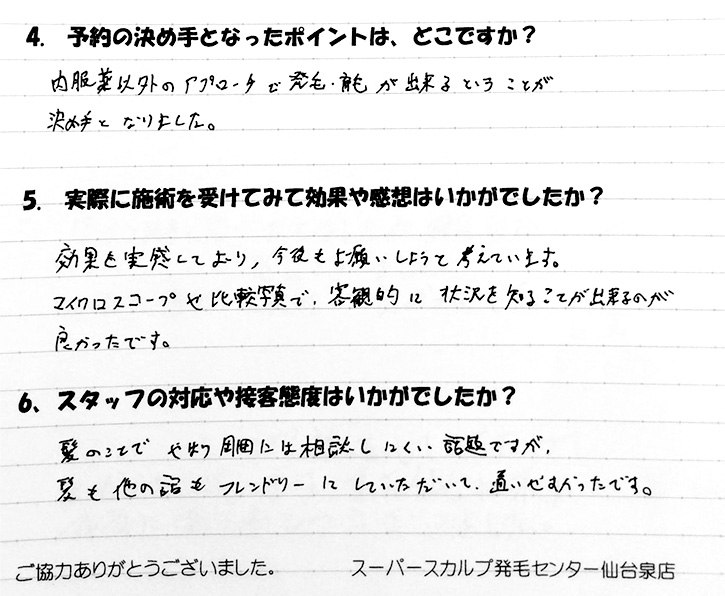 4. 予約の決め手となったポイントは、どこですか？
内服薬以外のアプローチで発毛・育毛が出来るということが
決め手となりました。
5. 実際に施術を受けてみて効果や感想はいかがでしたか？
効果を実感しており、今後もお願いしようと考えています。
マイクロスコープや比較写真で、客観的に状況を知ることが出来るのが
良かったです。
6、スタッフの対応や接客態度はいかがでしたか？
髪のことでやはり周囲には相談しにくい話題ですが、
髪も他の話もフレンドリーにしていただいて、通いやすかったです。
ご協力ありがとうございました。 スーパースカルプ発毛センター仙台泉店